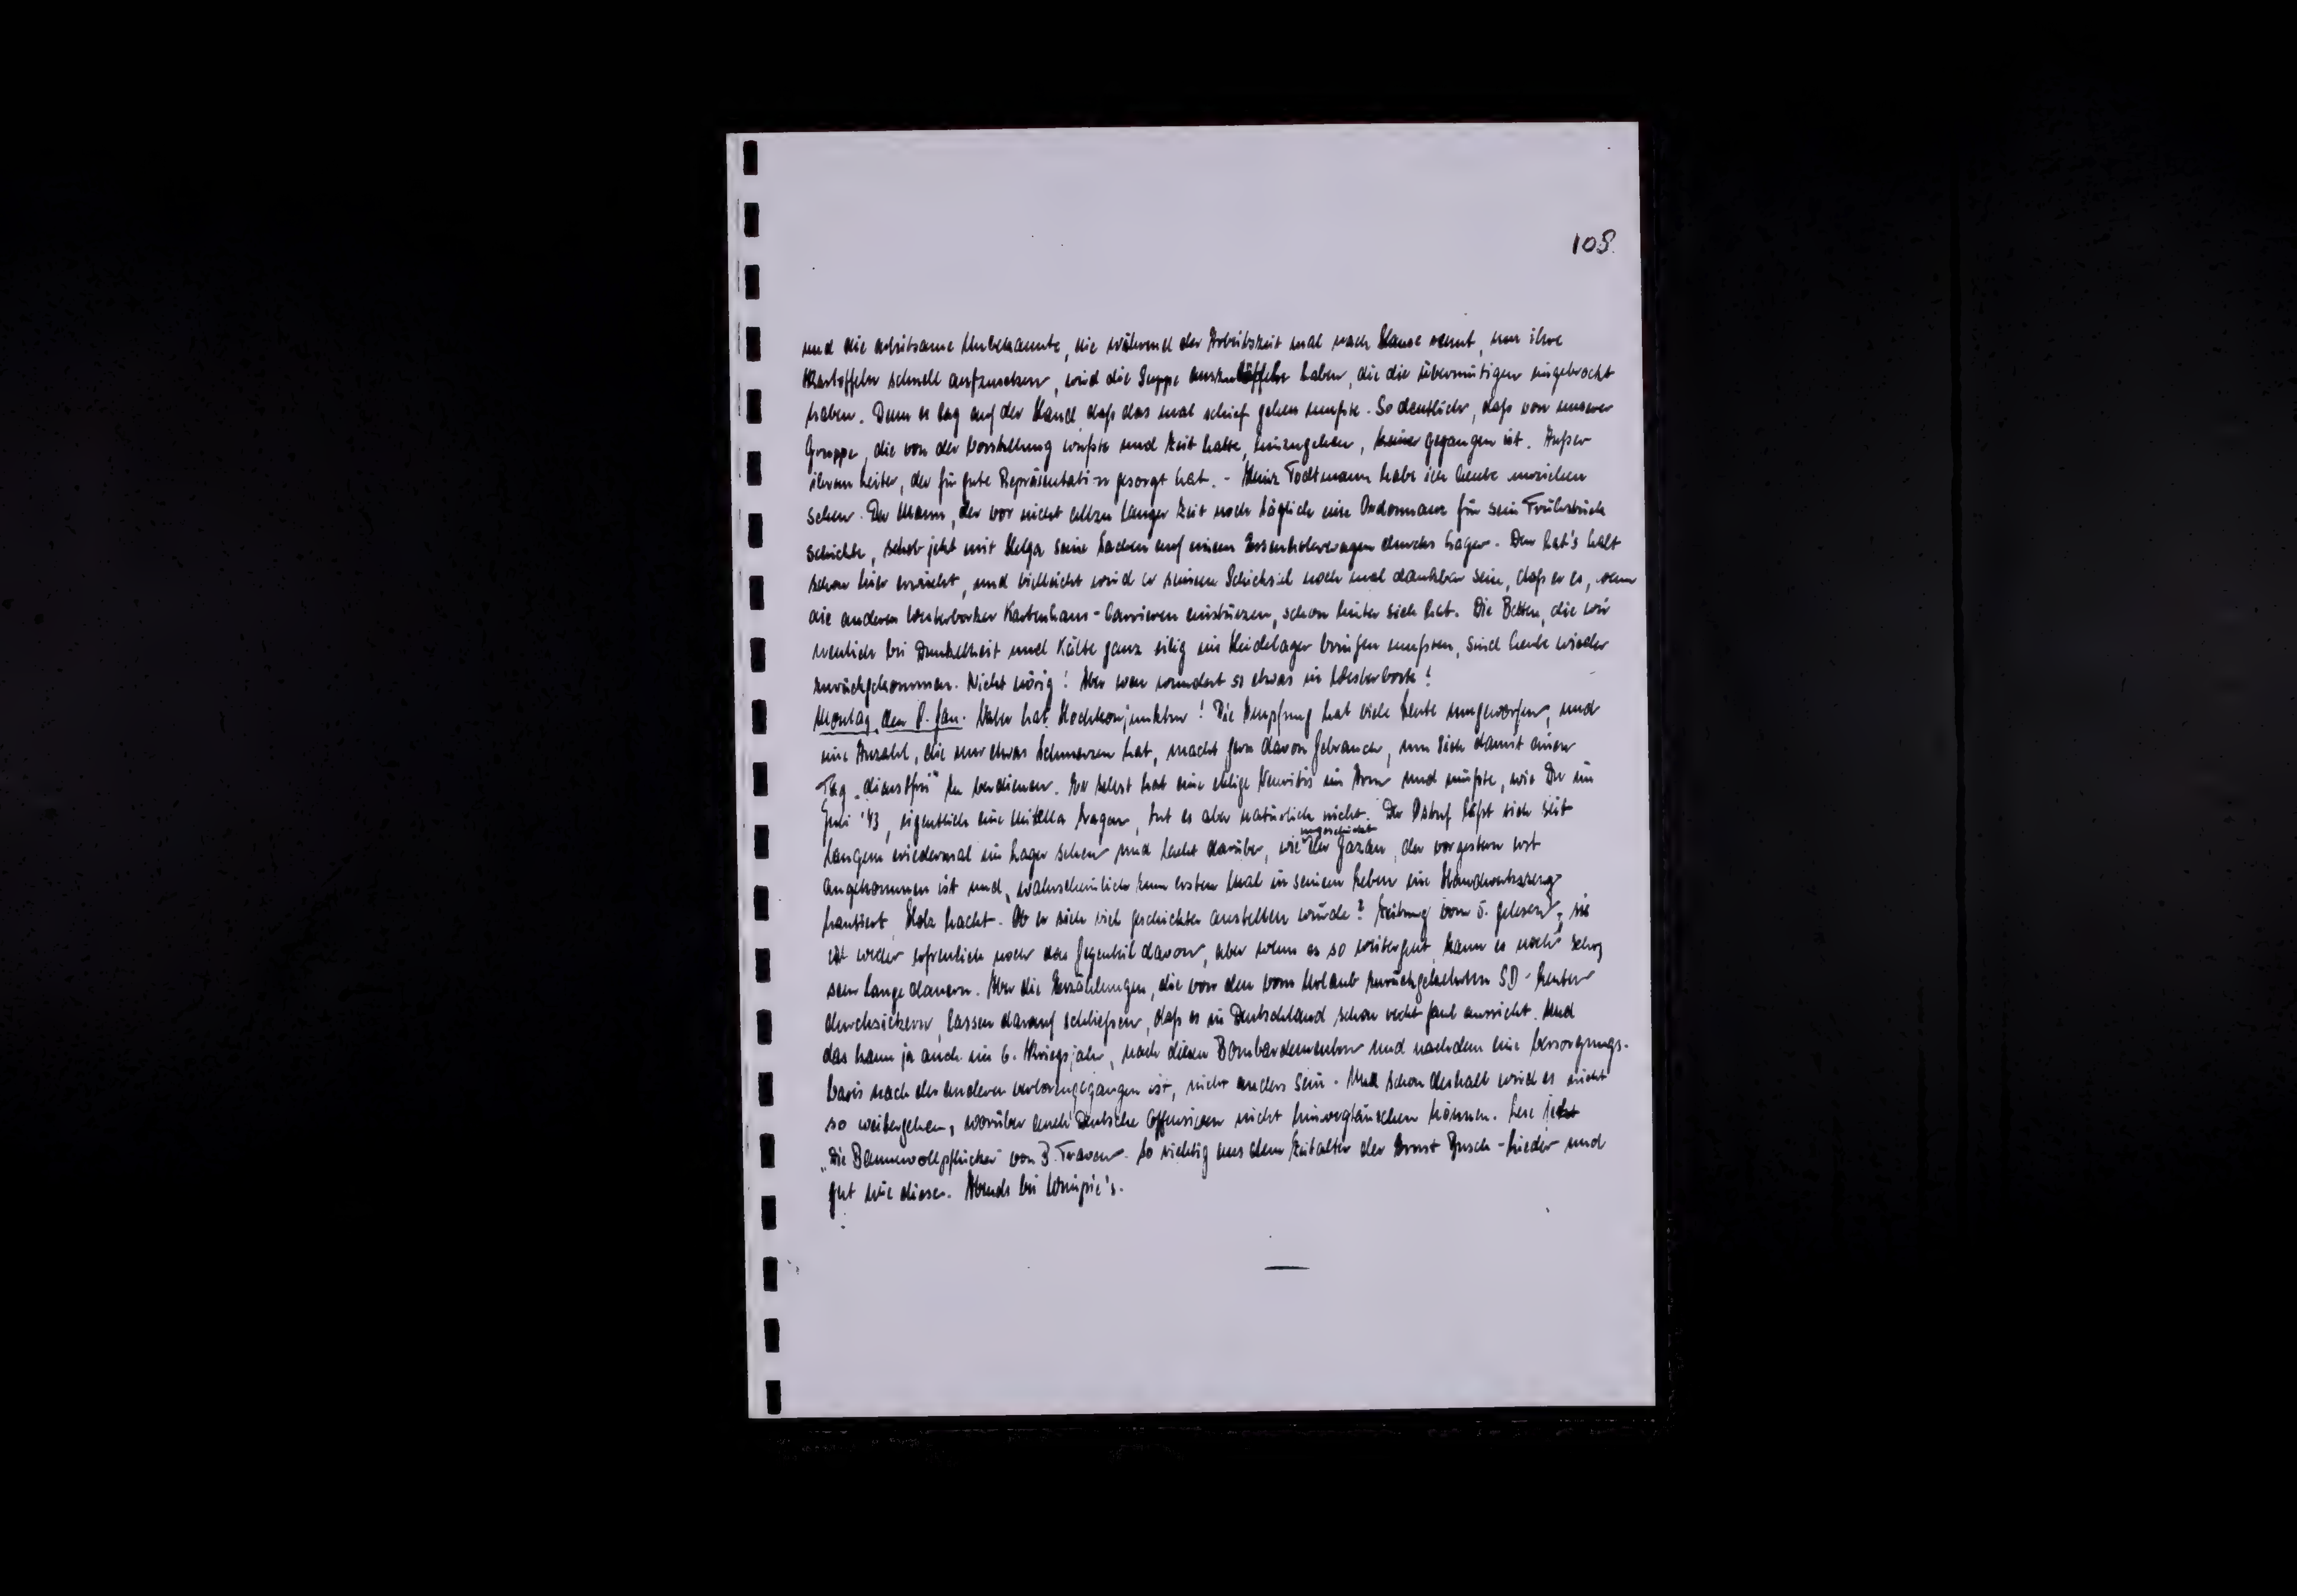 108.
und die arbeitsame Unbekannte, die während der Arbeitszeit mal nach Hause rennt, um ihre
Kartoffeln schnell aufzusetzen, wird die Suppe auszulöffeln haben, die die übermütigen eingebrockt
haben. Denn es lag auf der Hand, daß das mal schief gehen mußte. So deutlich, daß von unserer
Gruppe, die von der Vorstellung wußte und Zeit hatte, hinzugehen, keiner gegangen ist. Außer
ihrem Leiter, der für gute Repräsentation gesorgt hat. - Heinz Todtmann habe ich heute umziehen
sehen. Der Mann, der vor nicht allzu langer Zeit noch täglich eine Ordonnanz für sein Frühstück
schickte, schob jetzt mit Helga seine Sachen auf einem Essenholerwagen durchs Lager. Den hat's halt
schon hier erwischt, und vielleicht wird er seinem Schicksal noch mal dankbar sein, daß er es, wenn
die anderen Westerborker Kartenhaus-Carrieren einstürzen, schon hinter sich hat. Die Betten, die wir
neulich bei Dunkelheit und Kälte ganz eilig ins Heidelager bringen mußten, sind heute wieder
zurückgekommen. Nicht nötig! Aber wen wundert so etwas in Westerbork!
Montag, den 8. Jan. Vater hat Hochkonjunktur! Die Impfung hat viele Leute umgeworfen, und
eine Anzahl, die nur etwas Schmerzen hat, macht gern davon Gebrauch, um sich damit einen
Tag "dienstfrei" zu verdienen. Er selbst hat eine eklige Neuritis im Arm und müßte, wie Du im
Juli '43, eigentlich eine Mitella tragen, tut es aber natürlich nicht. Der Ostuf läßt sich seit
langem wiedermal im Lager sehen und lacht darüber, wie ungeschickt der Gazan, der vorgestern erst
angekommen ist und, wahrscheinlich zum ersten Mal in seinem Leben ein Handwerkszeug
hantiert, Holz hackt. Ob er sich viel geschickter anstellen würde? Zeitung vom 5. gelesen; sie
ist weder erfreulich noch das Gegenteil davon, aber wenn es so weitergeht, kann es noch sehr,
sehr lange dauern. Aber die Erzählungen, die von den vom Urlaub zurückgekehrten SD-Leuten
durchsickern, lassen darauf schließen, daß es in Deutschland schon recht faul aussieht. Und
das kann ja auch im 6. Kriegsjahr, nach diesen Bombardementen und nachdem eine Versorgungs-
basis nach der anderen verlorengegangen ist, nicht anders sein. Und schon deshalb wird es nicht
so weitergehen, worüber auch Deutsche Offensiven nicht hinwegtäuschen können. Lese jetzt
"Die Baumwollpflücker" von B. Traven. So richtig aus dem Zeitalter der Ernst Busch-Lieder und
gut wie diese. Abends bei